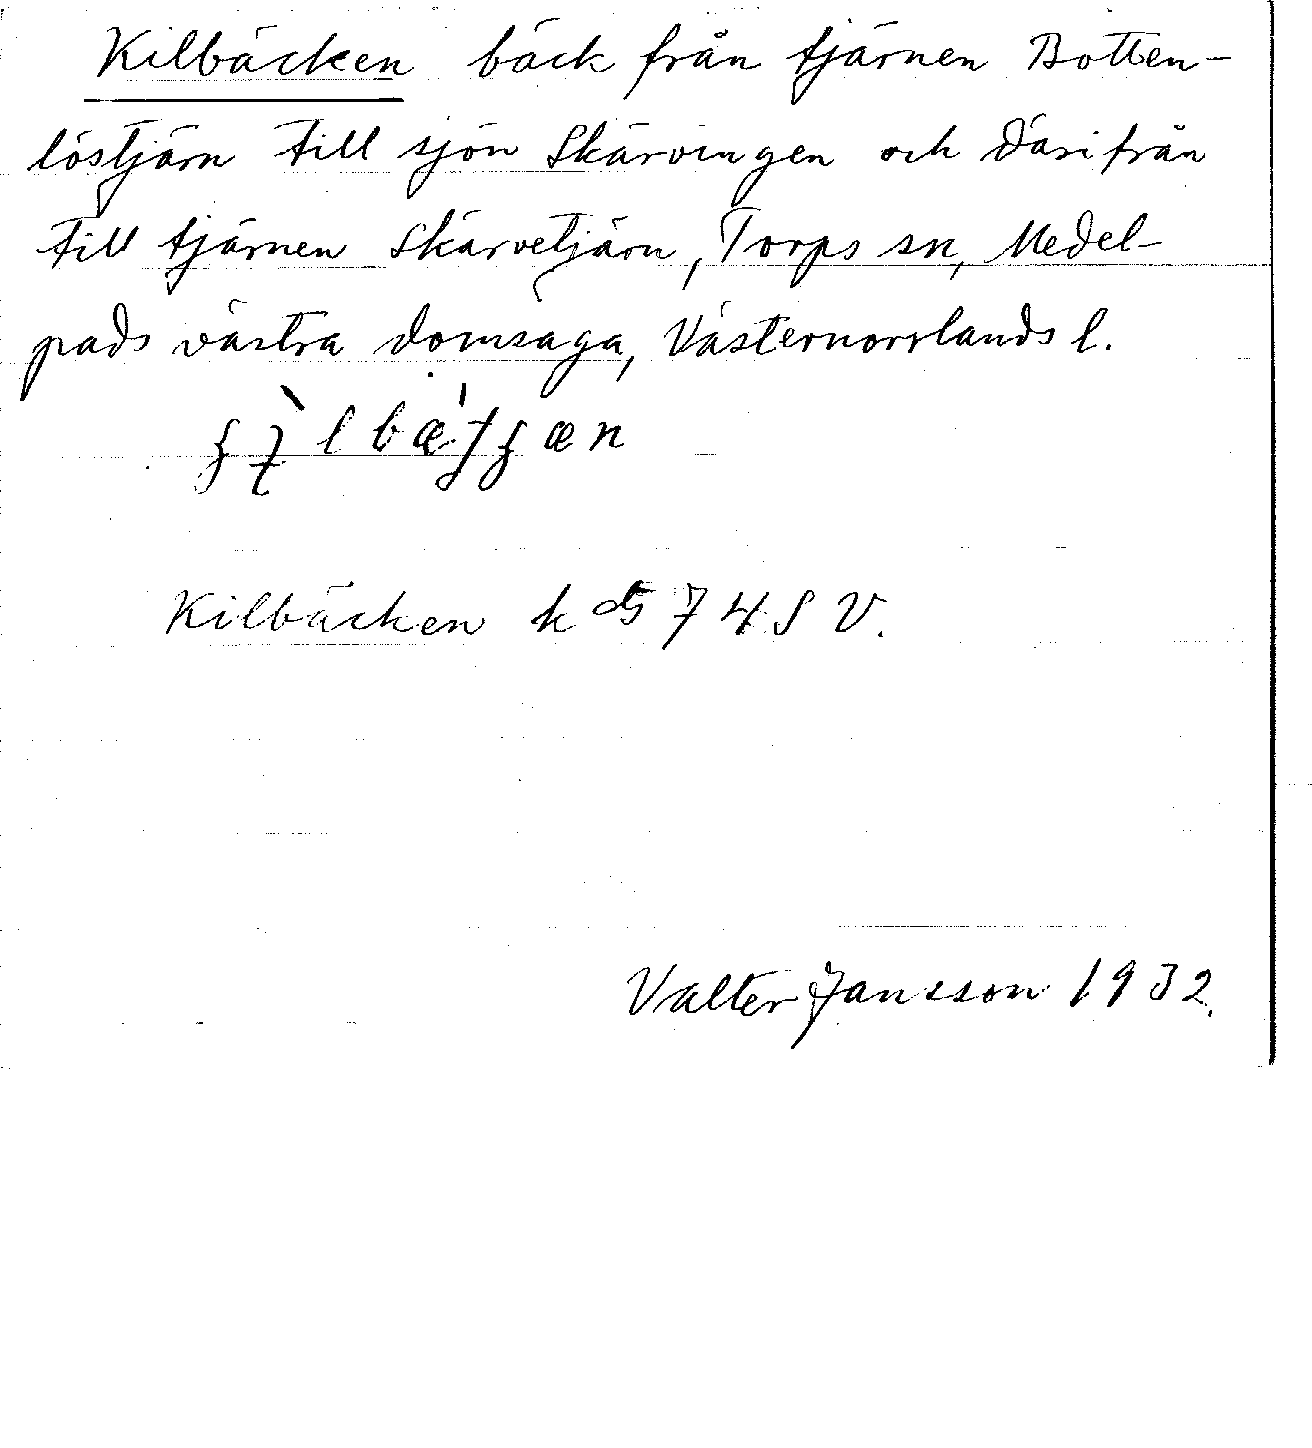 Kilbäcken bäck från tjärnen Botten-
löstjärn till sjön Skärvingen och därifrån
till tjärnen Skärvetjärn, Torps sn, Medel-
pads västra domsaga, Västernorrlands l.
Kilbäcken k 74 S V.
Valter Jansson 1932.